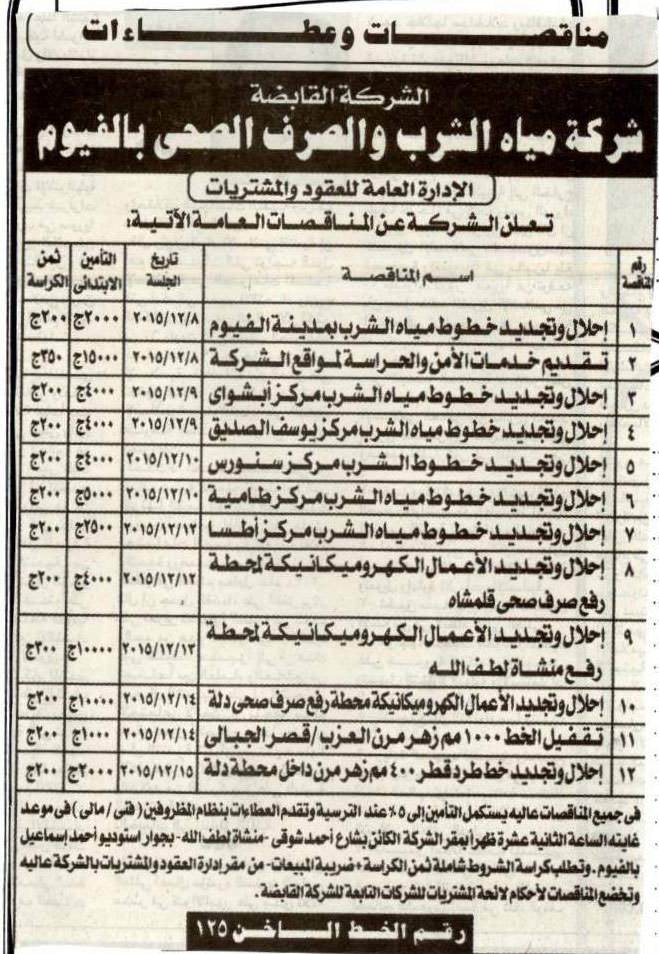 مناقصات وعطاءات
الشركة القابضة
شركة مياه الشرب والصرف الصحى بالفيوم
الإدارة العامة للعقود والمشتريات
تعلن الشركة عن المناقصات العامة الآتية:
رقم المناقصة | اسم المناقصة | تاريخ الجلسة | التأمين الابتدائى | ثمن الكراسة
١ | إحلال وتجديد خطوط مياه الشرب بمدينة الفيوم | ٢٠١٥/١٢/٨ | ٢٠٠٠ج | ٢٠٠ج
٢ | تقديم خدمات الأمن والحراسة لمواقع الشركة | ٢٠١٥/١٢/٨ | ١٥٠٠٠ج | ٣٥٠ج
٣ | إحلال وتجديد خطوط مياه الشرب مركز أبشواى | ٢٠١٥/١٢/٩ | ٤٠٠٠ج | ٢٠٠ج
٤ | إحلال وتجديد خطوط مياه الشرب مركز يوسف الصديق | ٢٠١٥/١٢/٩ | ٤٠٠٠ج | ٢٠٠ج
٥ | إحلال وتجديد خطوط الشرب مركز سنورس | ٢٠١٥/١٢/١٠ | ٤٠٠٠ج | ٢٠٠ج
٦ | إحلال وتجديد خطوط مياه الشرب مركز طامية | ٢٠١٥/١٢/١٠ | ٥٠٠٠ج | ٢٠٠ج
٧ | إحلال وتجديد خطوط مياه الشرب مركز أطسا | ٢٠١٥/١٢/١٢ | ٢٥٠٠ج | ٢٠٠ج
٨ | إحلال وتجديد الأعمال الكهروميكانيكة لمحطة | ٢٠١٥/١٢/١٢ | ٤٠٠٠ج | ٢٠٠ج
رفع صرف صحى قلمشاه
٩ | إحلال وتجديد الأعمال الكهروميكانيكة لمحطة | ٢٠١٥/١٢/١٣ | ١٠٠٠٠ج | ٣٠٠ج
رفع منشاة لطف الله
١٠ | إحلال وتجديد الأعمال الكهروميكانيكة محطة رفع صرف صحى دلة | ٢٠١٥/١٢/١٤ | ١٠٠٠٠ج | ٣٠٠ج
١١ | تقفيل الخط ١٠٠٠ مم زهر مرن العزب/قصر الجبالى | ٢٠١٥/١٢/١٤ | ١٠٠٠ج | ٢٠٠ج
١٢ | إحلال وتجديد خط طرد قطر ٤٠٠ مم زهر مرن داخل محطة دلة | ٢٠١٥/١٢/١٥ | ٢٠٠٠ج | ٢٠٠ج
فى جميع المناقصات عاليه يستكمل التأمين إلى ٥٪ عند الترسية وتقدم العطاءات بنظام المظروفين (فنى/مالى) فى موعد
غايته الساعة الثانية عشرة ظهراً بمقر الشركة الكائن بشارع أحمد شوقى - منشاة لطف الله - بجوار استوديو أحمد إسماعيل
بالفيوم. وتطلب كراسة الشروط شاملة ثمن الكراسة + ضريبة المبيعات - من مقر إدارة العقود والمشتريات بالشركة عاليه
وتخضع المناقصات لأحكام لائحة المشتريات للشركات التابعة للشركة القابضة.
رقم الخط الساخن ١٢٥